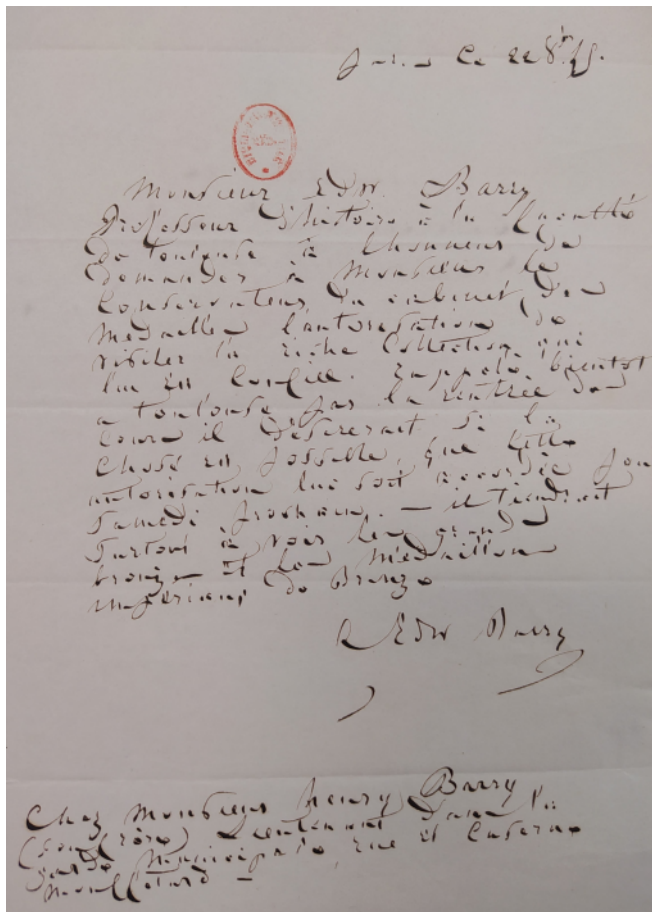 Paris Ce 22 8bre 45.
Monsieur Edw. Barry
professeur d'histoire à la faculté
de toulouse a l'honneur de
demander à Monsieur le
Conservateur du cabinet des
medailles l'autorisation de
visiter la riche Collection qui
lui est Confiée. Rappelé bientôt
a toulouse par la rentrée des
Cours il desirerait si la
Chose est possible, que cette
autorisation lui soit accordée pour
Samedi prochain. — il tiendrait
surtout à voir les grands
bronzes et les médaillons
impériaux de Bronze
Edw Barry
Chez Monsieur henry Barry
(son frère) Lieutenant dans la
garde Municipale, rue et Caserne
Mouffetard —